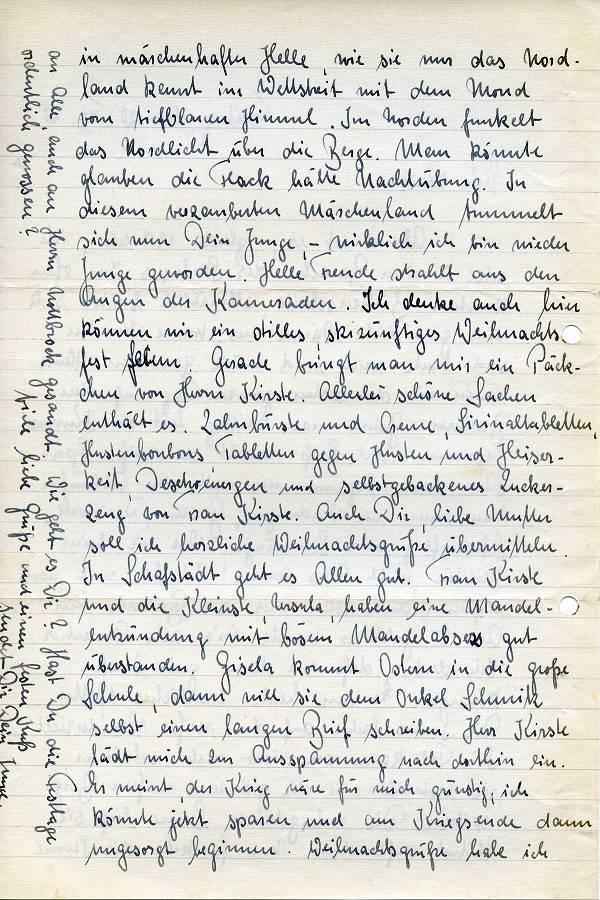 in märchenhafter Helle, wie sie nur das Nord-
land kennt im Wettstreit mit dem Mond
vom tiefblauen Himmel. Im Norden funkelt
das Nordlicht über die Berge. Man könnte
glauben die Flack hätte Nachtübung. In
diesem verzauberten Märchenland tummelt
sich nun Dein Junge, – wirklich ich bin wieder
Junge geworden. Helle Freude strahlt aus den
Augen der Kameraden. Ich denke auch hier
können wir ein stilles skizünftiges Weihnachts
fest feiern. Gerade bringt man mir ein Päck-
chen von Herrn Kirste. Allerlei schöne Sachen
enthält es. Zahnbürste und Creme, Tabletten,
Hustenbonbons Tabletten gegen Husten und Heiser-
keit, und selbstgebackenes Zucker-
zeug von Frau Kirste. Auch Dir liebe Mutter
soll ich herzliche Weihnachtsgrüße übermitteln.
In Schafstädt geht es Allen gut. Frau Kirste
und die Kleinste, Ursula, haben eine Mandel-
entzündung mit bösem Mandelabsess gut
überstanden. Gisela kommt Ostern in die große
Schule, dann will sie dem Onkel Schmitz
selbst einen langen Brief schreiben. Herr Kirste
lädt mich zur Ausspannung nach dorthin ein.
Er meint, der Krieg wäre für mich günstig, ich
könnte jetzt sparen und am Kriegsende dann
ungesorgt beginnen. Weihnachtsgrüße habe ich
an Alle, auch an Herrn gesandt. Wie geht es Dir? Hast Du die Festtage
ordentlich genossen?
Viele liebe Grüße und einen festen Kuß
sendet Dir Dein Junge.